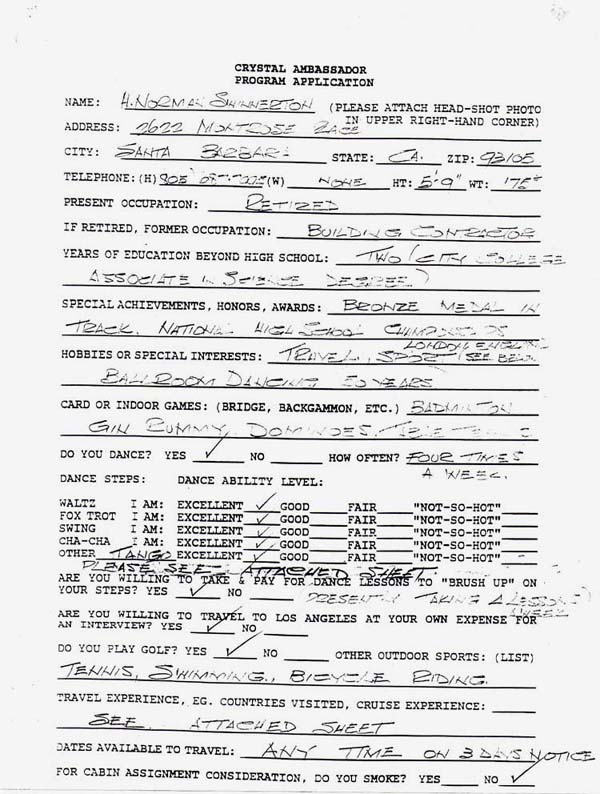 CRYSTAL AMBASSADOR
PROGRAM APPLICATION
NAME: H. NORMAN SWINNERTON (PLEASE ATTACH HEAD-SHOT PHOTO
IN UPPER RIGHT-HAND CORNER)
ADDRESS: 2622 MONTROSE PLACE
CITY: SANTA BARBARA STATE: CA. ZIP: 93105
TELEPHONE: (H) 805 (W) NONE HT: 5'-9" WT: 175#
PRESENT OCCUPATION: RETIRED
IF RETIRED, FORMER OCCUPATION: BUILDING CONTRACTOR
YEARS OF EDUCATION BEYOND HIGH SCHOOL: TWO (CITY COLLEGE
ASSOCIATE IN SCIENCE DEGREE)
SPECIAL ACHIEVEMENTS, HONORS, AWARDS: BRONZE MEDAL IN
TRACK, NATIONAL HIGH SCHOOL
LONDON, ENGLAND
HOBBIES OR SPECIAL INTERESTS: TRAVEL, SPORT (SEE BELOW
BALLROOM DANCING 50 YEARS
CARD OR INDOOR GAMES: (BRIDGE, BACKGAMMON, ETC.) BADMINTON
GIN RUMMY, DOMINOES, TABLE TENNIS
DO YOU DANCE? YES ✓ NO HOW OFTEN? FOUR TIMES
A WEEK.
DANCE STEPS: DANCE ABILITY LEVEL:
WALTZ I AM: EXCELLENT ✓ GOOD FAIR "NOT-SO-HOT"
FOX TROT I AM: EXCELLENT ✓ GOOD FAIR "NOT-SO-HOT"
SWING I AM: EXCELLENT ✓ GOOD FAIR "NOT-SO-HOT"
CHA-CHA I AM: EXCELLENT ✓ GOOD FAIR "NOT-SO-HOT"
OTHER TANGO EXCELLENT ✓ GOOD FAIR "NOT-SO-HOT"
PLEASE SEE ATTACHED SHEET
ARE YOU WILLING TO TAKE & PAY FOR DANCE LESSONS TO "BRUSH UP" ON
YOUR STEPS? YES ✓ NO (PRESENTLY TAKING 2 LESSONS
A WEEK)
ARE YOU WILLING TO TRAVEL TO LOS ANGELES AT YOUR OWN EXPENSE FOR
AN INTERVIEW? YES ✓ NO
DO YOU PLAY GOLF? YES ✓ NO OTHER OUTDOOR SPORTS: (LIST)
TENNIS, SWIMMING, BICYCLE RIDING.
TRAVEL EXPERIENCE, EG. COUNTRIES VISITED, CRUISE EXPERIENCE:
SEE ATTACHED SHEET
DATES AVAILABLE TO TRAVEL: ANY TIME ON 3 DAYS NOTICE
FOR CABIN ASSIGNMENT CONSIDERATION, DO YOU SMOKE? YES NO ✓